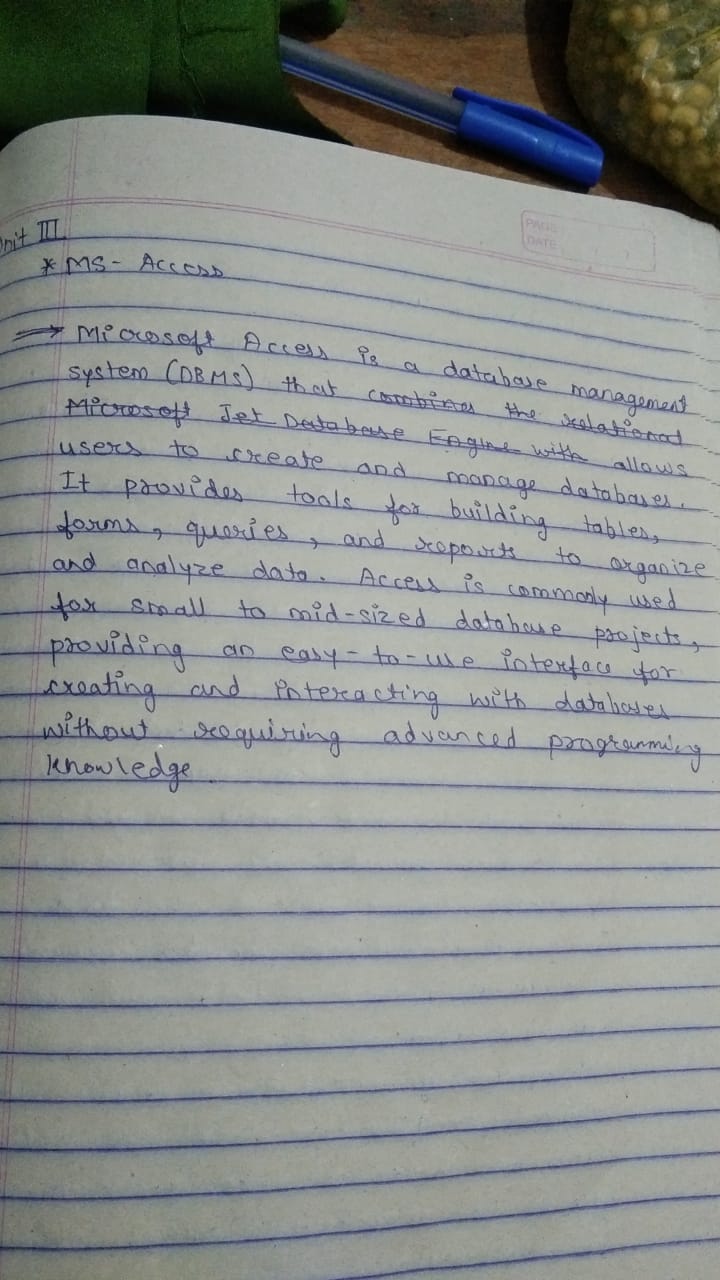 Unit III
* MS - Access
PAGE
DATE
→ Microsoft Access is a database management
system (DBMS) that combines the relational
Microsoft Jet Database Engine with allows
users to create and manage databases.
It provides tools for building tables,
forms, queries, and reports to organize
and analyze data. Access is commonly used
for small to mid-sized database projects,
providing an easy-to-use interface for
creating and interacting with databases
without requiring advanced programming
knowledge.